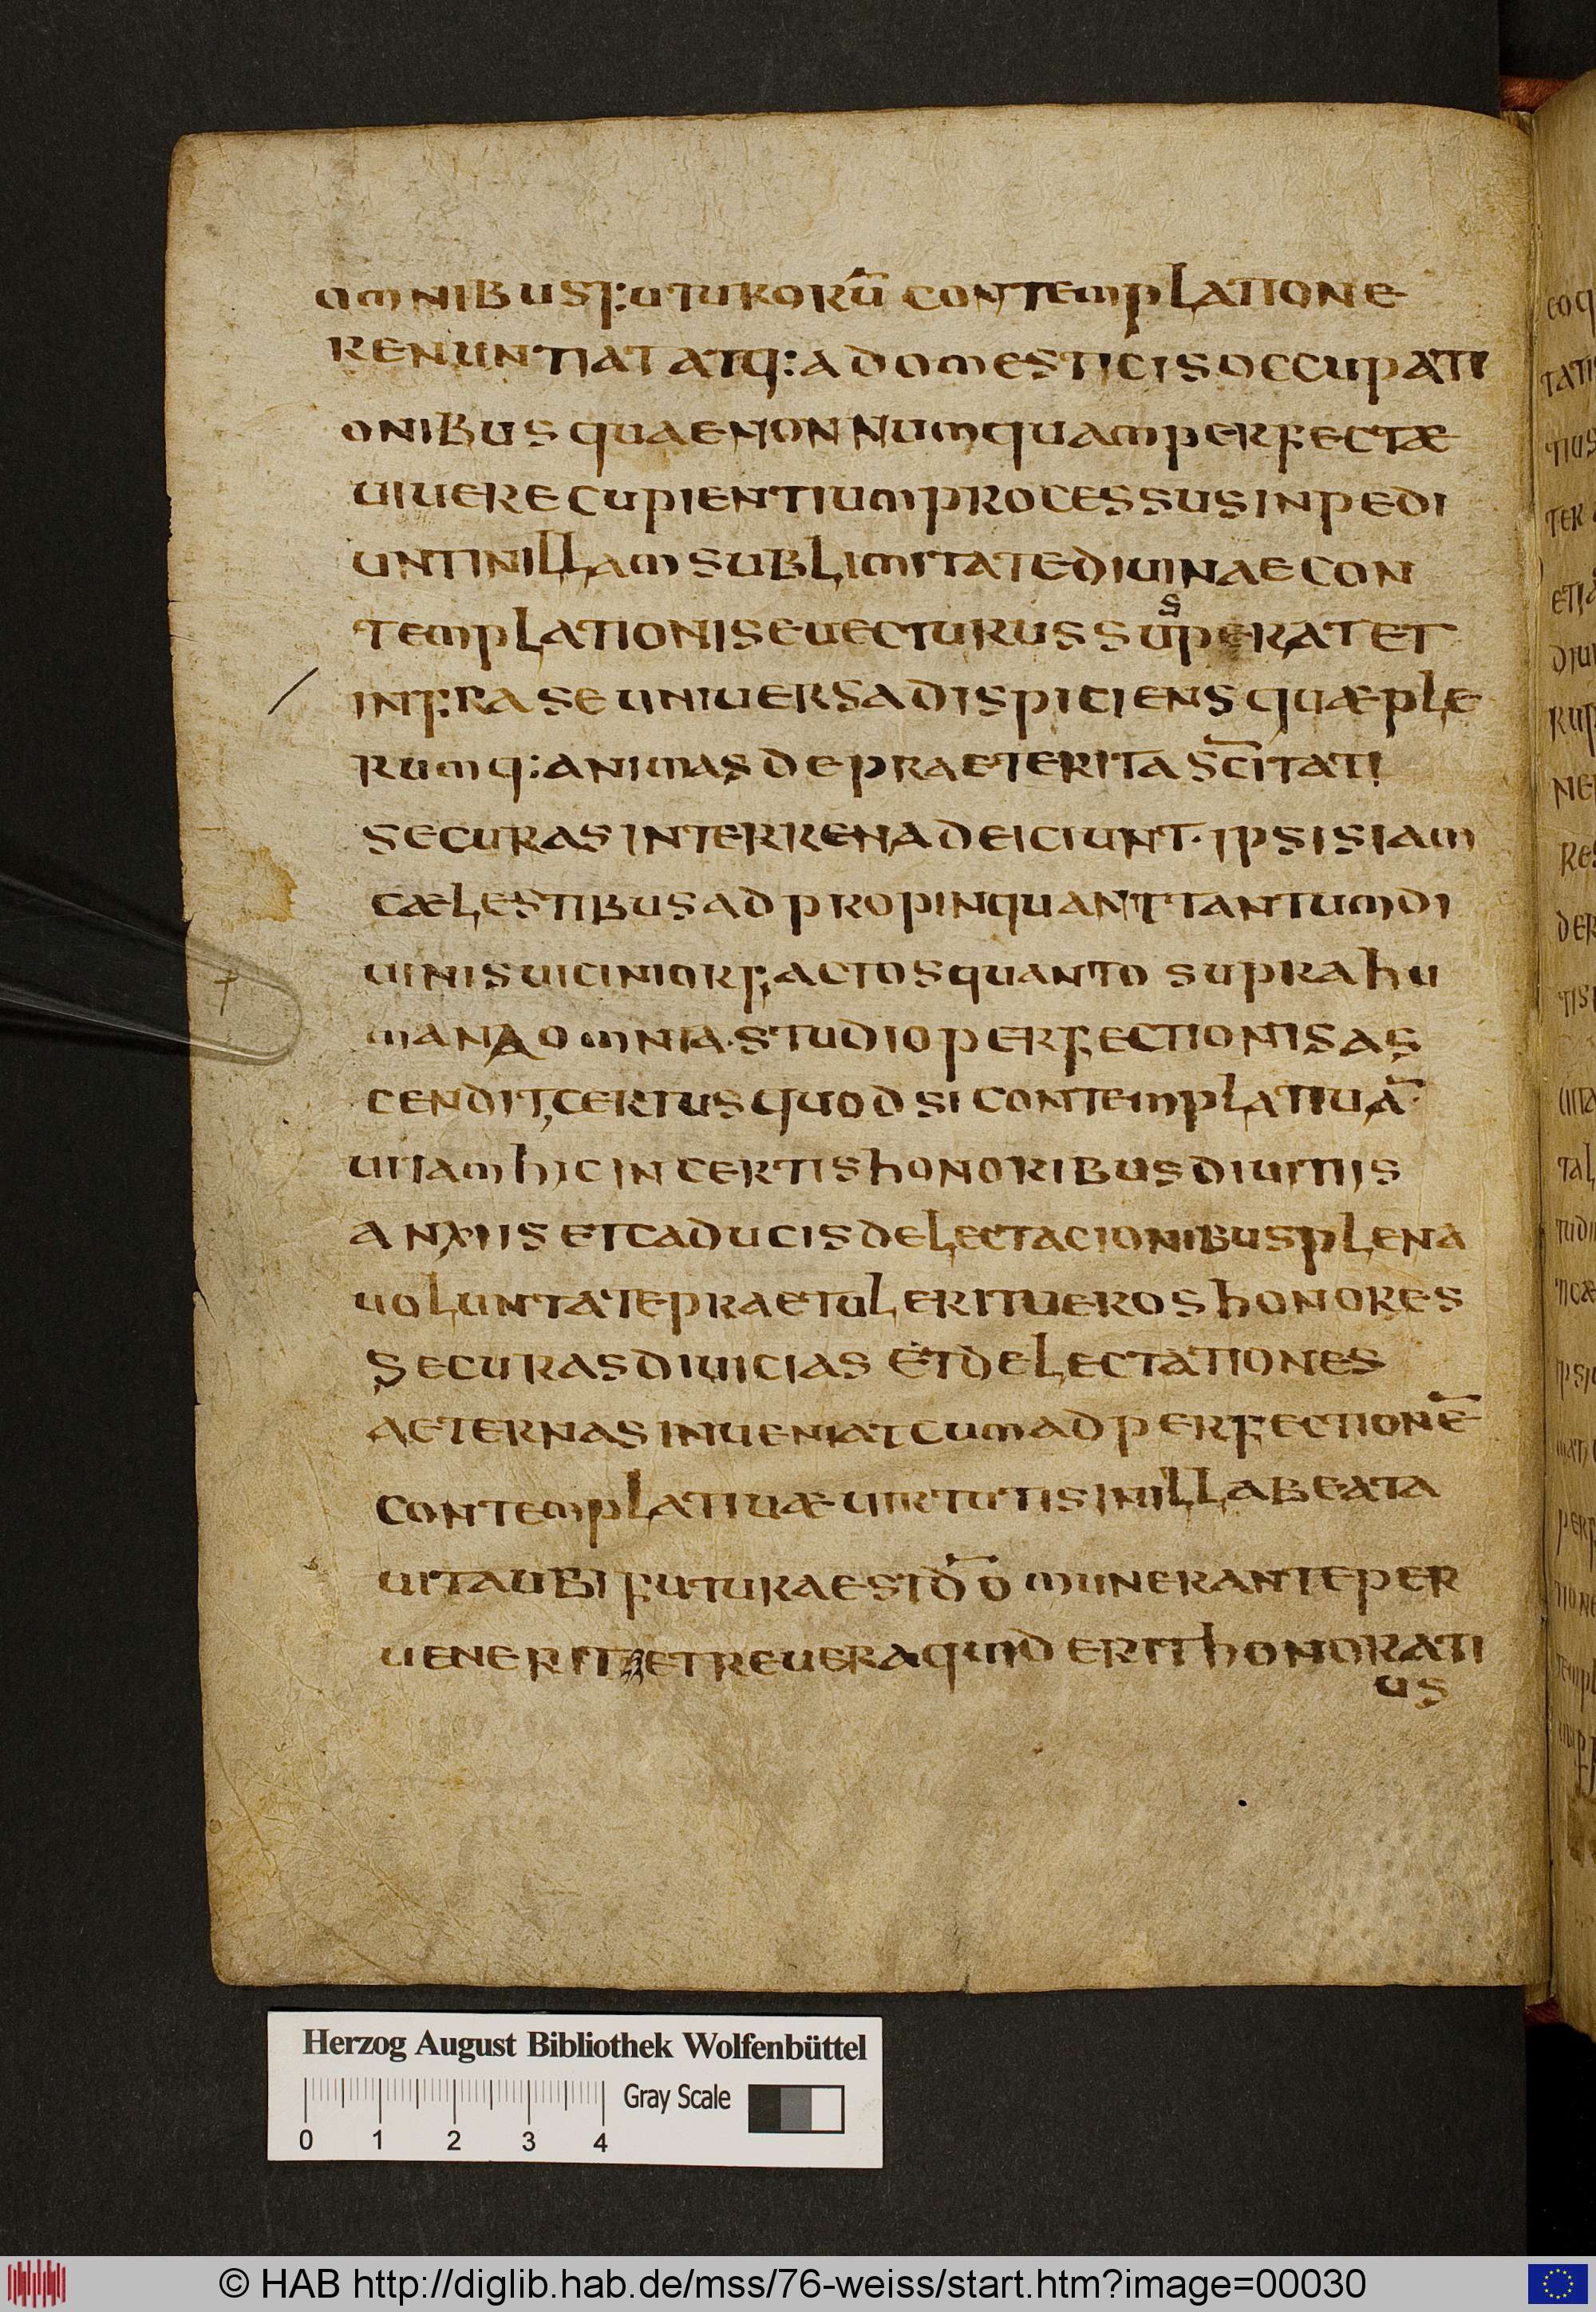 omnibus futurorū contemplatione
renuntiat atq: a domesticis occupati
onibus quae non numquam perfectæ
uiuere cupientium processus inpedi
unt in illam sublimitate diuinae con
templationis euecturus suspe rat et
infra se uniuersa dispiciens quæ ple
rumq: animas de praeterita sc̄itati
securas in terrena deiciunt· ipsis iam
cælestibus adpropinquant tantum di
uinis uicinior factos quanto supra hu
mana omnia· studio perfectionis as
cendit, certus quod si contemplatiuā·
uitam hic incertis honoribus diuitiis
anxiis et caducis delectacionibus plena
uoluntate praetulerit ueros honores
securas diuicias et delectationes
aeternas inueniat cum ad perfectionē
contemplatiuæ uirtutis in illa beata
uita ubi futura est d̄ō munerante per
uenerit et reuera quid erit honorati
us
Herzog August Bibliothek Wolfenbüttel
Gray Scale
0 1 2 3 4
© HAB http://diglib.hab.de/mss/76-weiss/start.htm?image=00030